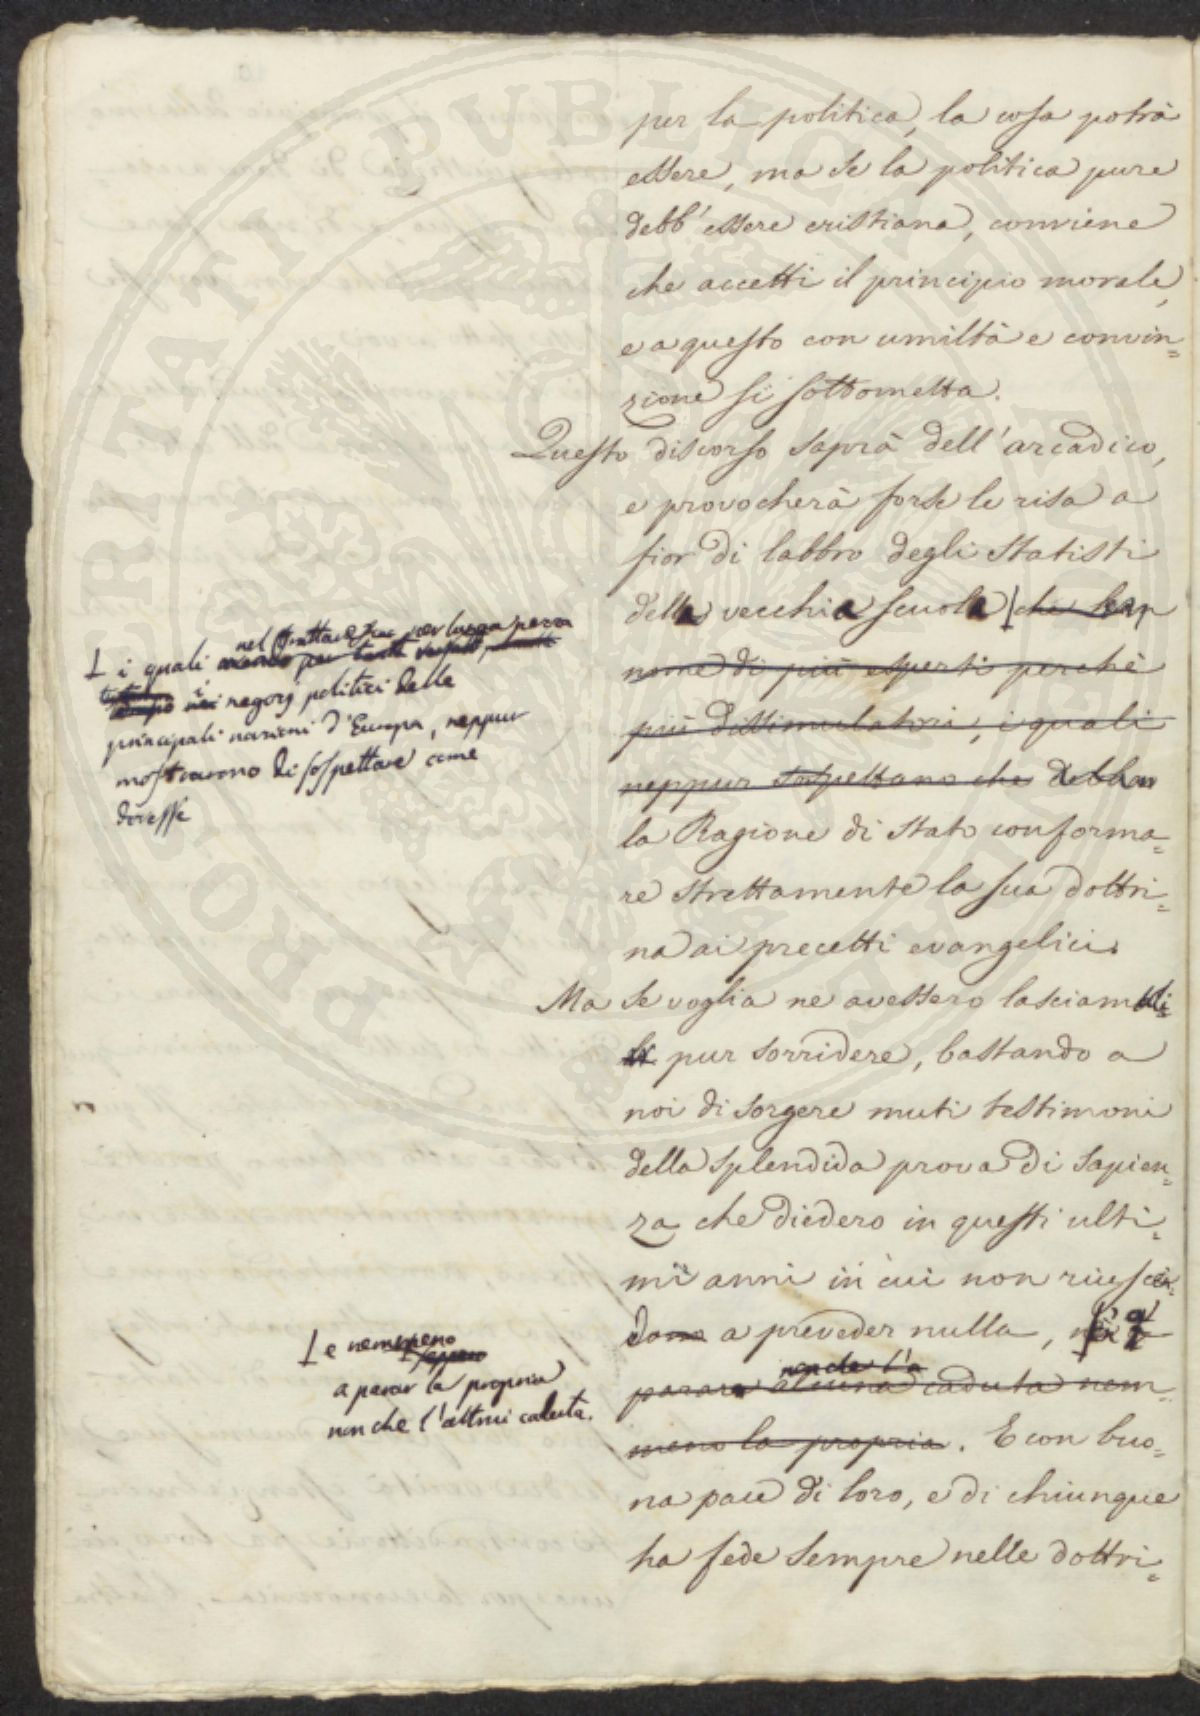 per la politica, la cosa potrà
essere, ma se la politica pure
debb'essere cristiana, conviene
che accetti il principio morale,
e a questo con umiltà e convin=
zione si sottometta.
Questo discorso saprà dell'arcadico,
e provocherà forse le risa a
fior di labbro degli statisti
della vecchia scuola che han
nome di più esperti perchè
più dissimulatori, i quali
neppur sospettano che debba
la Ragione di Stato conforma=
re strettamente la sua dottri=
na ai precetti evangelici.
Ma se voglia ne avessero lasciamoli
pur sorridere, bastando a
noi di sorgere muti testimoni
della splendida prova di sapien=
za che diedero in questi ulti=
mi anni in cui non riusci
rono a preveder nulla, nè a
parare alcuna caduta nem=
meno la propria. E con buo=
na pace di loro, e di chiunque
ha fede sempre nelle dottri=
i quali nel trattare per lunga pezza
i negozj politici delle
principali nazioni d'Europa, neppur
mostrarono di sospettare come
dovesse
e nemmeno
a parar la propria
non che l'altrui caduta.
non che l'a
PROSPERITATI PUBLICAE